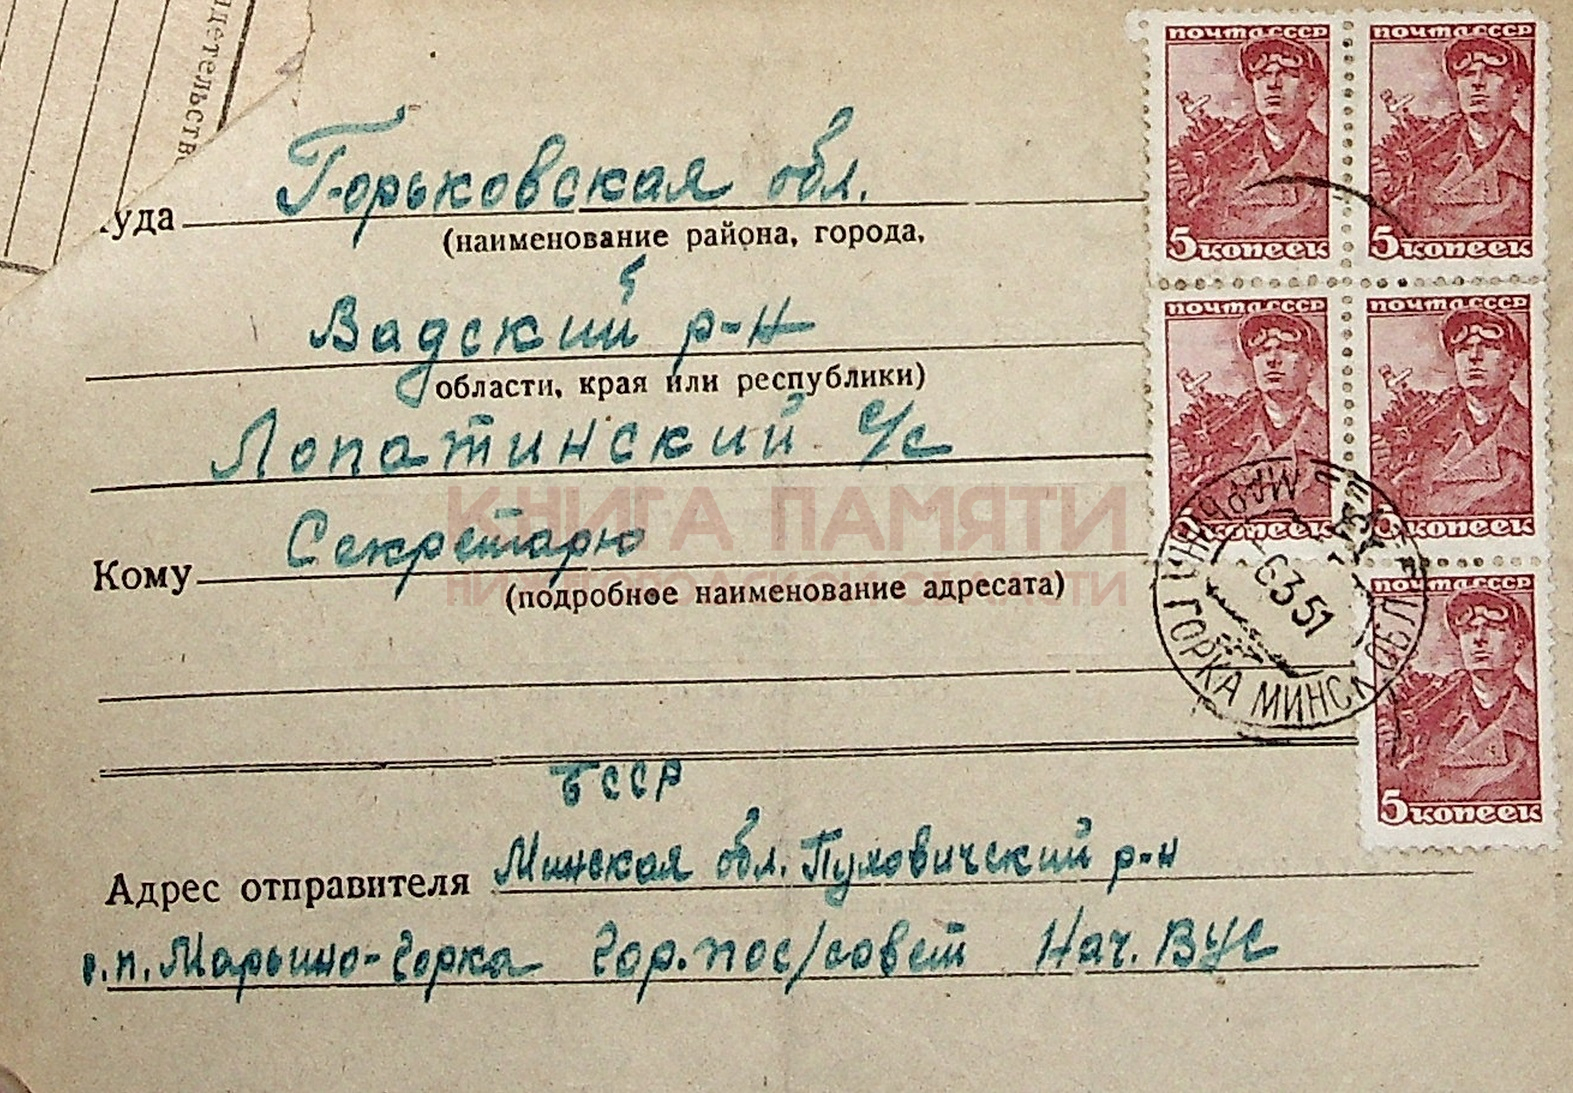 детельств
Куда Горьковская обл.
(наименование района, города,
Вадский р-н
области, края или республики)
Лопатинский с/с
Кому Секретарю
(подробное наименование адресата)
КНИГА ПАМЯТИ
НИЖЕГОРОДСКОЙ ОБЛАСТИ
БССР
Адрес отправителя Минская обл. Пуховичский р-н
г.п. Марьино-Горка Гор.пос/совет Нач. ВУС
ПОЧТА СССР
5 КОПЕЕК
ПОЧТА СССР
5 КОПЕЕК
ПОЧТА СССР
КОПЕЕК
ПОЧТА СССР
КОПЕЕК
ПОЧТА СССР
5 КОПЕЕК
ГОРКА МИНСК ОБЛ
6351